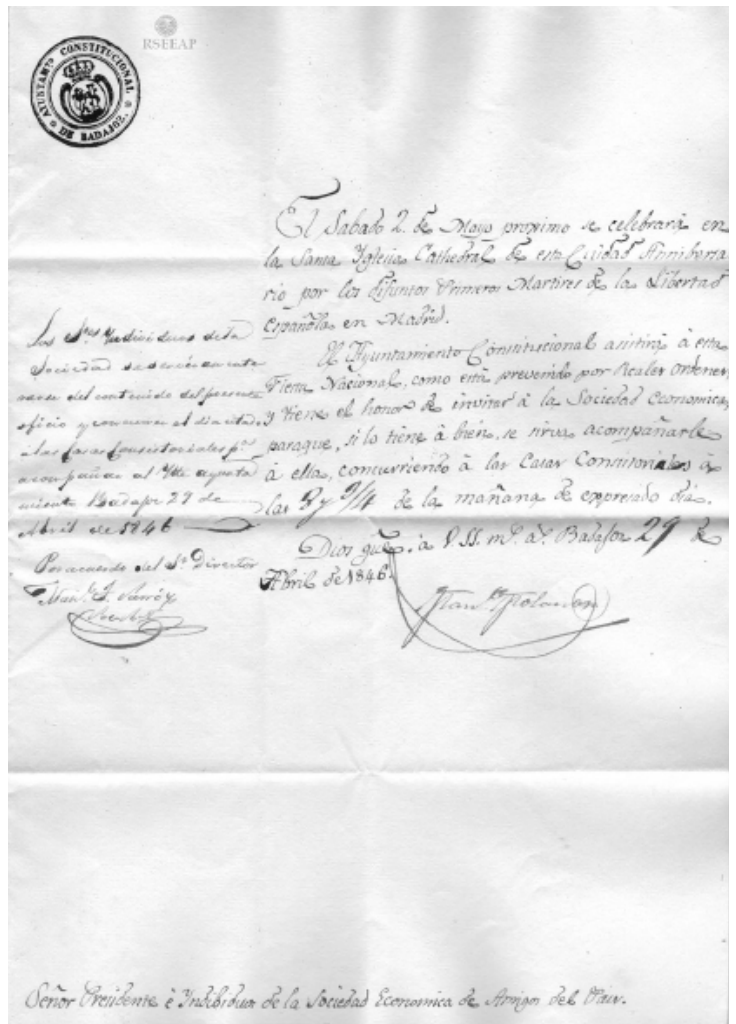 RSEEAP
AYUNTAMTO CONSTITUCIONAL
DE BADAJOZ.
El Sabado 2. de Mayo proximo se celebrará en
la Santa Yglesia Cathedral de esta Ciudad Anniberta
rio por los difuntos Primeros Martires de la Libertad
Española en Madrid.
El Ayuntamiento Constitucional asistirá á esta
Fiesta Nacional, como está prevenido por Reales ordenes,
y tiene el honor de invitar á la Sociedad economica,
paraque, si lo tiene á bien, se sirva acompañarle
á ella, concurriendo á las Casas Consistoriales á
las 8 y 3/4 de la mañana de expresado dia.
Dios gue. a V.SS. ms. as. Badajoz 29 de
Abril de 1846.
Los Sres. Yndividuos de la
Sociedad se servirán ente
rarse del contenido del presente
oficio y concurrir el dia citado
á las Casas Consistoriales pa.
acompañar al Yltre ayunta
miento Badajoz 29 de
Abril de 1846
Por acuerdo del Sr. Director
Señor Presidente é Yndibiduos de la Sociedad Economica de Amigos del Pais.